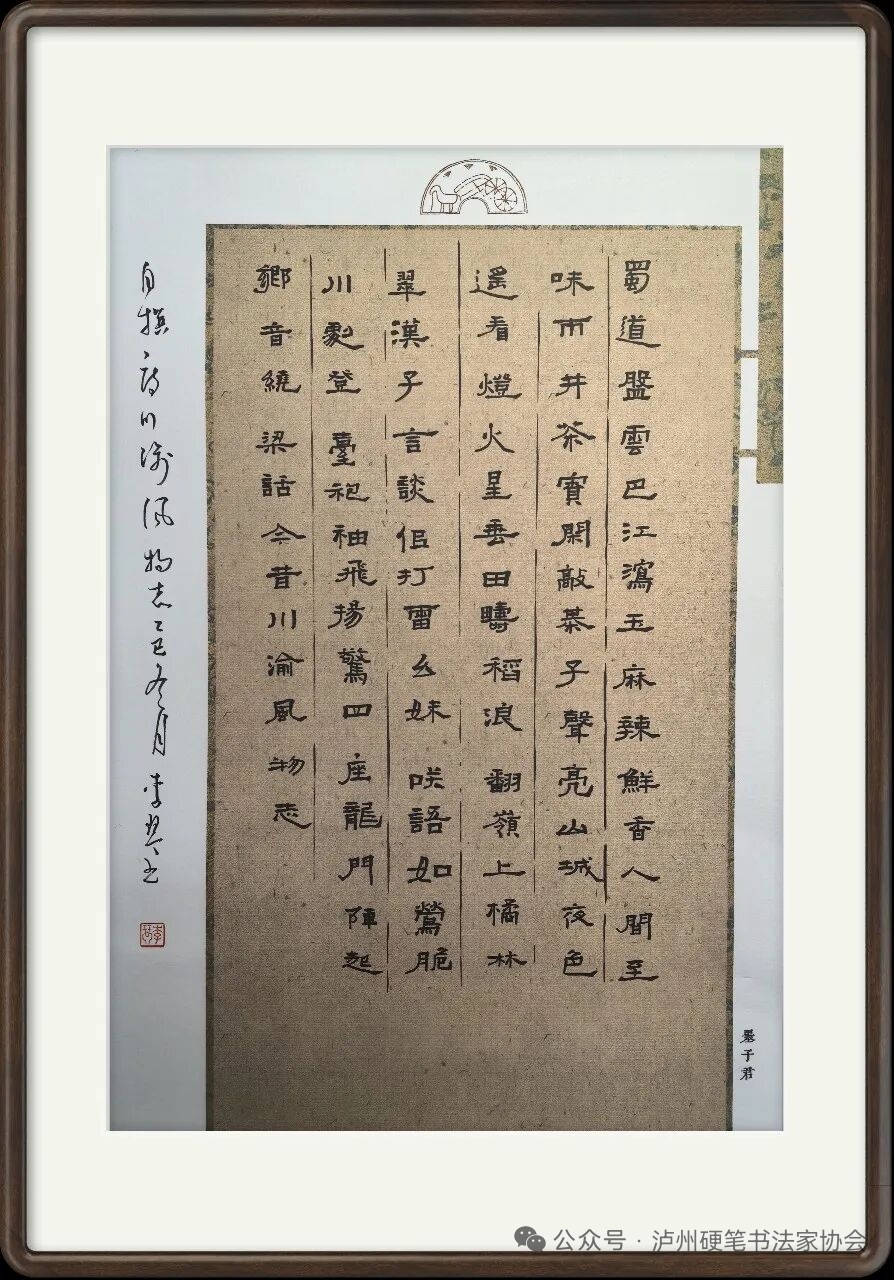 蜀道盤雲巴江瀉玉麻辣鮮香人間至
味市井茶賓閑敲棊子聲亮山城夜色
遙看燈火星垂田疇稻浪翻嶺上橘林
翠漢子言談佀打雷幺妹咲語如鶯脆
川劇登臺袍袖飛揚驚四座龍門陣起
鄉音繞梁話今昔川渝風物志
自撰詩川渝風物志乙巳冬月李書
墨子君
公众号·泸州硬笔书法家协会